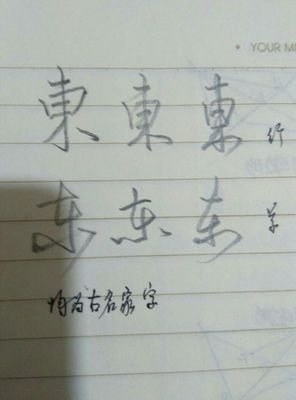 YOUR M
東東東 行
东东东 草
均为古名家字